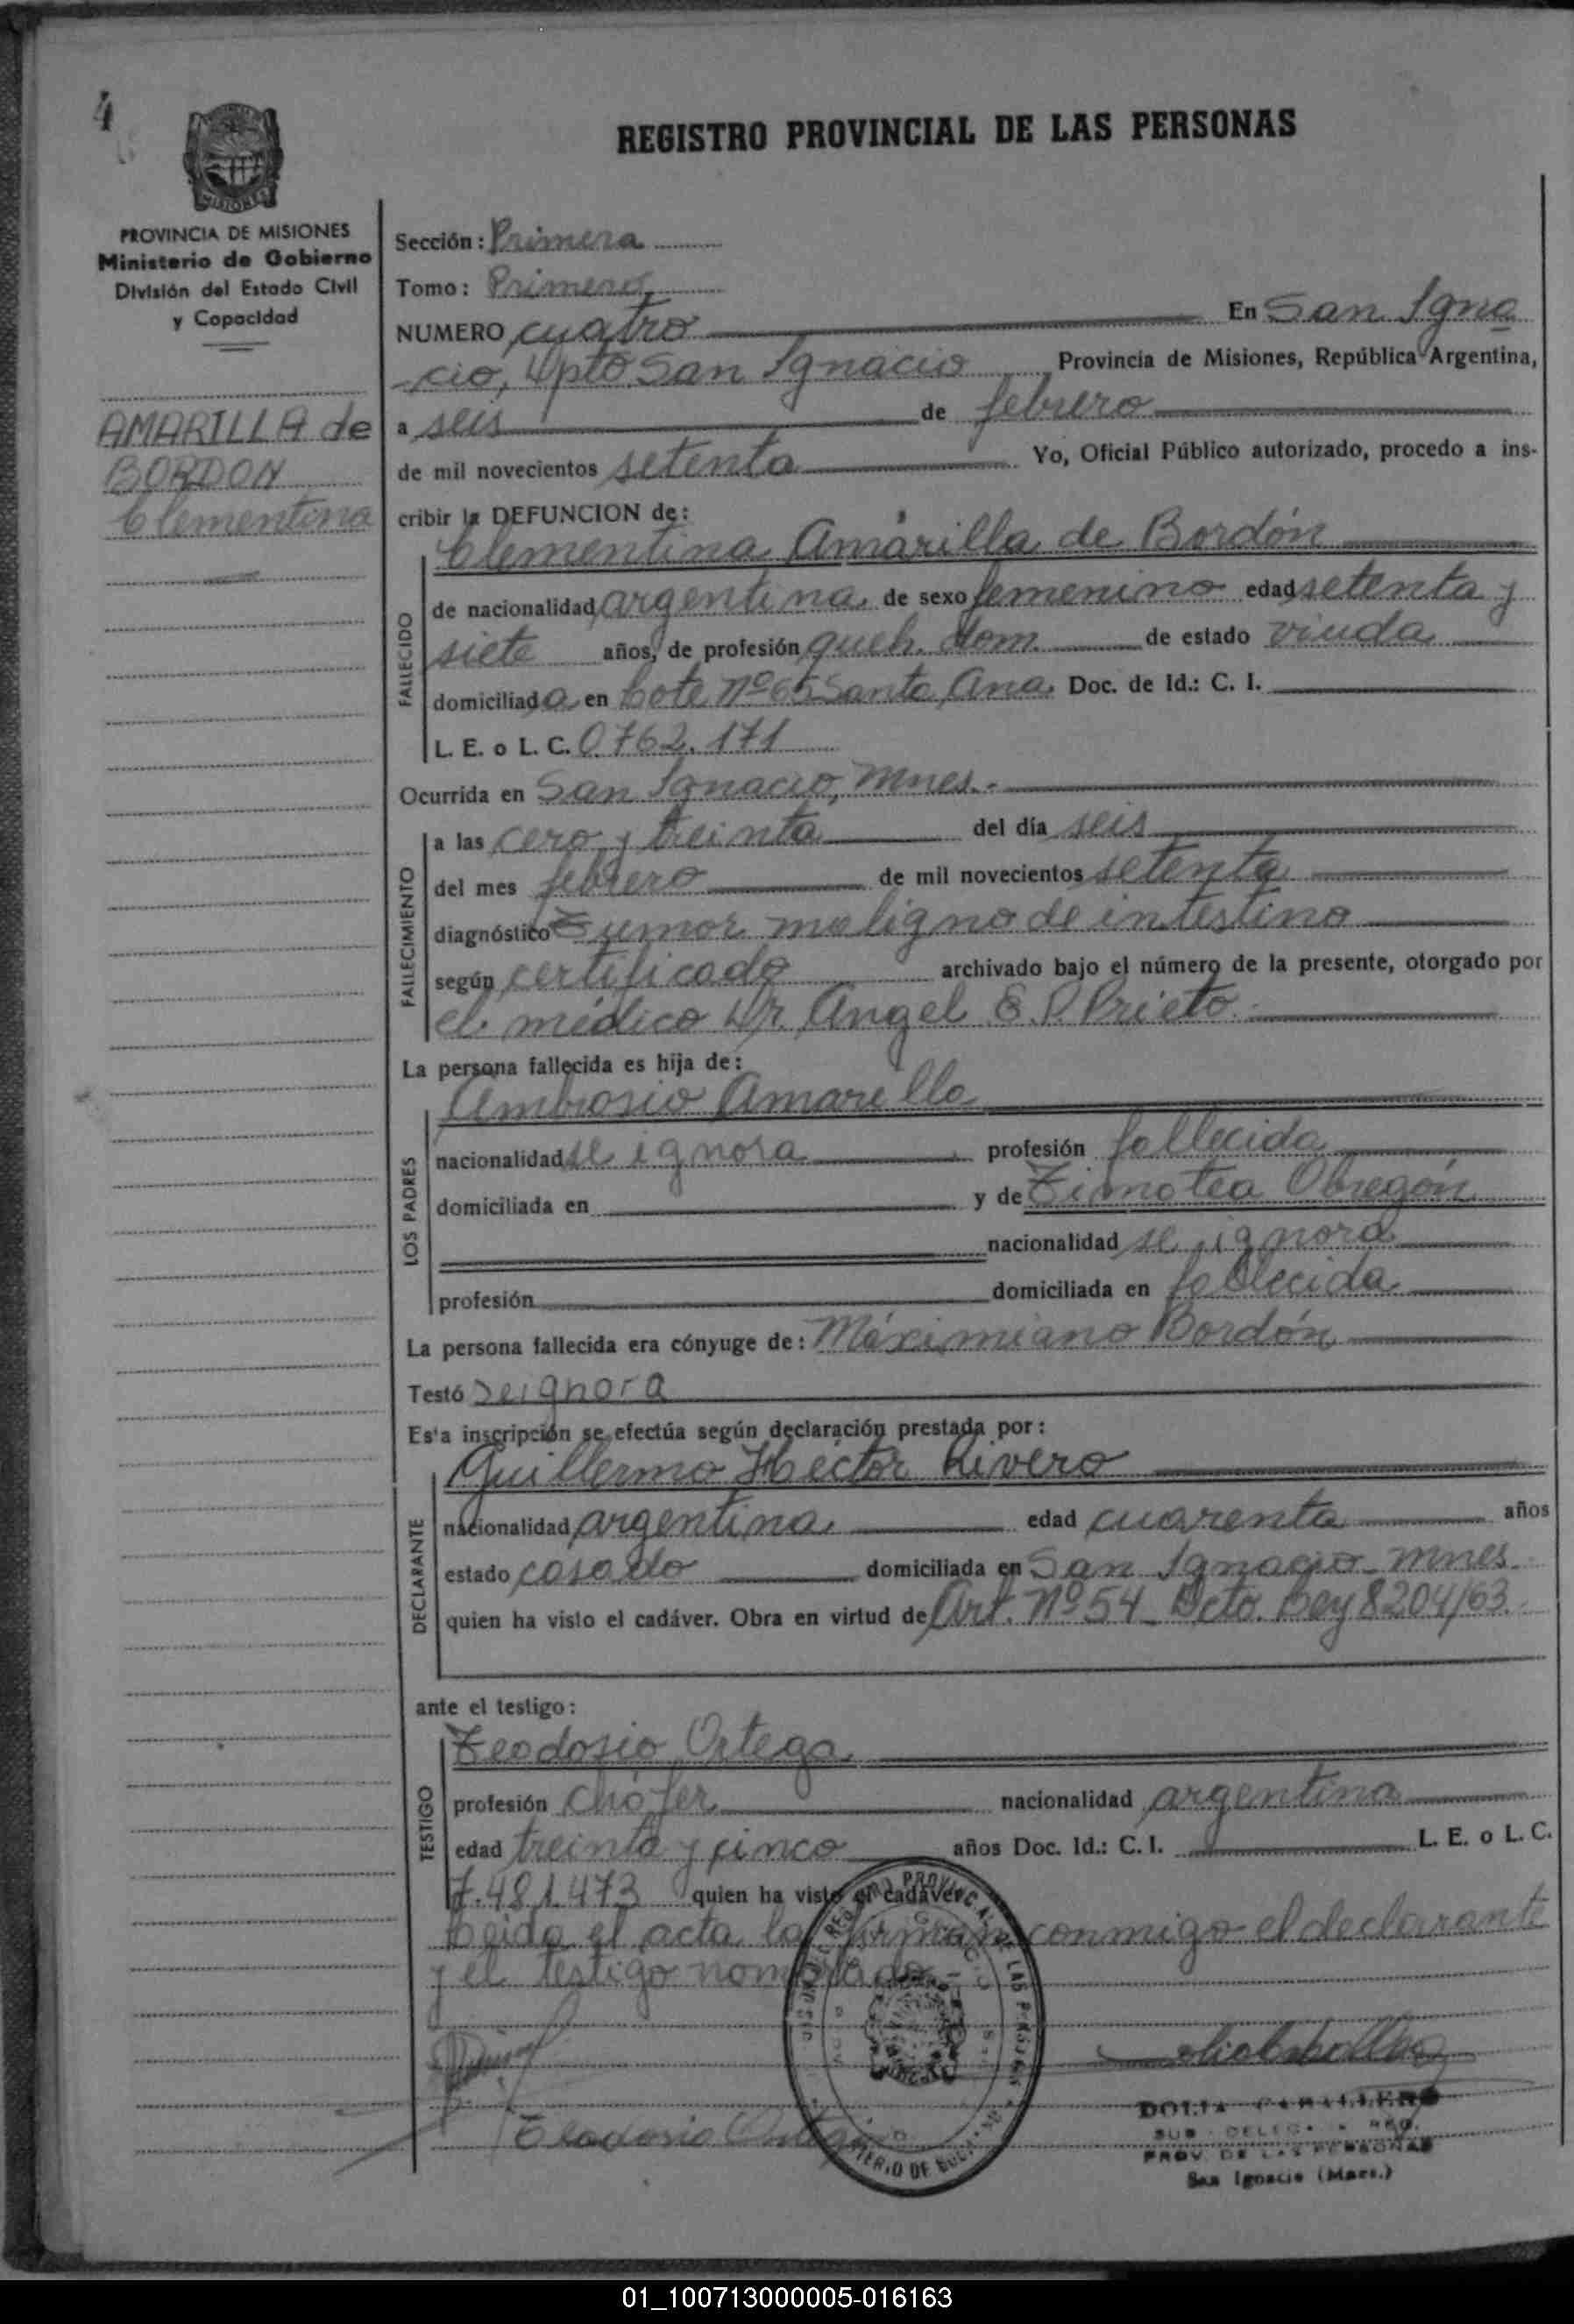 4
REGISTRO PROVINCIAL DE LAS PERSONAS
MISIONES
PROVINCIA DE MISIONES
Ministerio de Gobierno
División del Estado Civil
y Capacidad
AMARILLA de
BORDON
Clementina
Sección: Primera
Tomo: Primero
NUMERO cuatro En San Igna
cio, Dpto San Ignacio Provincia de Misiones, República Argentina,
a seis de febrero
de mil novecientos setenta Yo, Oficial Público autorizado, procedo a ins-
cribir la DEFUNCION de:
Clementina Amarilla de Bordón
FALLECIDO
de nacionalidad argentina de sexo femenino edad setenta y
siete años, de profesión queh. dom. de estado viuda
domiciliada en Lote Nº 65 Santa Ana. Doc. de Id.: C. I.
L. E. o L. C. 0762.171
Ocurrida en San Ignacio, Mnes.-
FALLECIMIENTO
a las cero y treinta del día seis
del mes febrero de mil novecientos setenta
diagnóstico Tumor maligno de intestino
según certificado archivado bajo el número de la presente, otorgado por
el médico Dr. Angel E. P. Prieto
La persona fallecida es hija de:
LOS PADRES
Ambrosio Amarella
nacionalidad se ignora profesión fallecida
domiciliada en y de Timotea Obregón
nacionalidad se ignora
profesión domiciliada en fallecida
La persona fallecida era cónyuge de: Máximiano Bordón
Testó se ignora
Esta inscripción se efectúa según declaración prestada por:
DECLARANTE
Guillermo Héctor Rivero
nacionalidad argentina edad cuarenta años
estado casado domiciliada en San Ignacio Mnes
quien ha visto el cadáver. Obra en virtud de Art. Nº 54 Dcto. Ley 8204/63.
ante el testigo:
TESTIGO
Teodosio Ortega
profesión chófer nacionalidad argentina
edad treinta y cinco años Doc. Id.: C. I. L. E. o L. C.
7.481.473 quien ha visto el cadáver
Leida el acta la firman conmigo el declarante
y el testigo nombrado
Teodosio Ortega
SUB DELEG. REG.
PROV. DE LAS PERSONAS
San Ignacio (Mnes.)
01_100713000005-016163